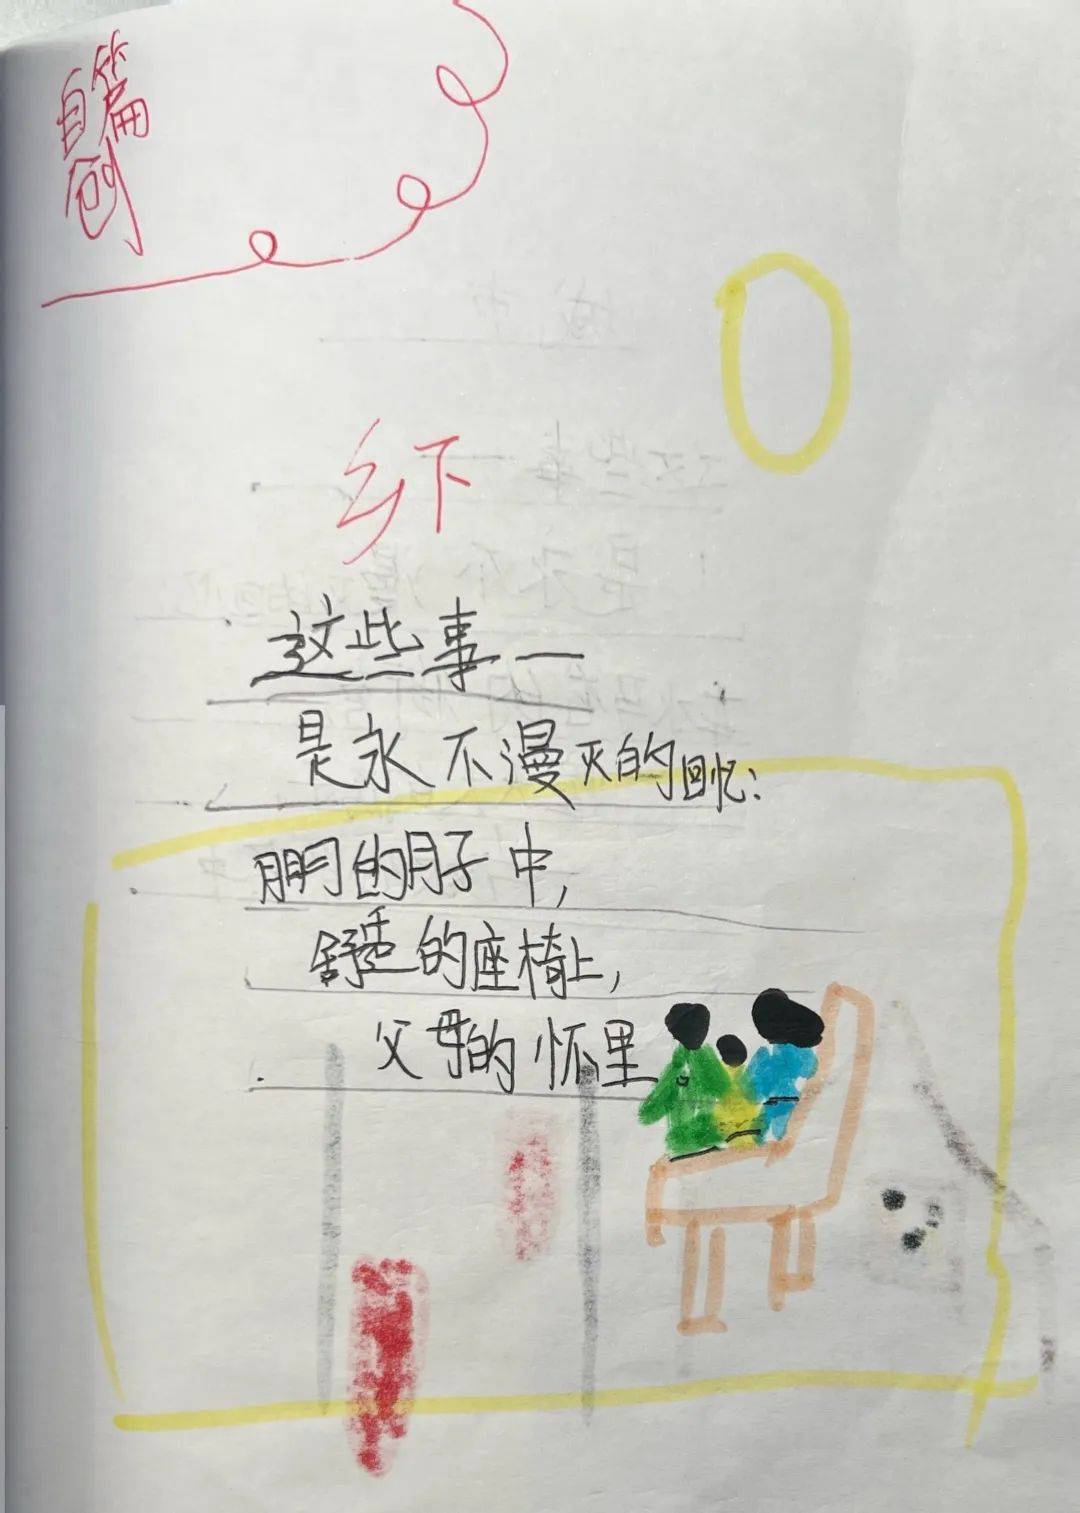 自创篇
乡下
这些事一
是永不漫灭的回忆：
月明的月子中，
舒适的座椅上，
父母的怀里